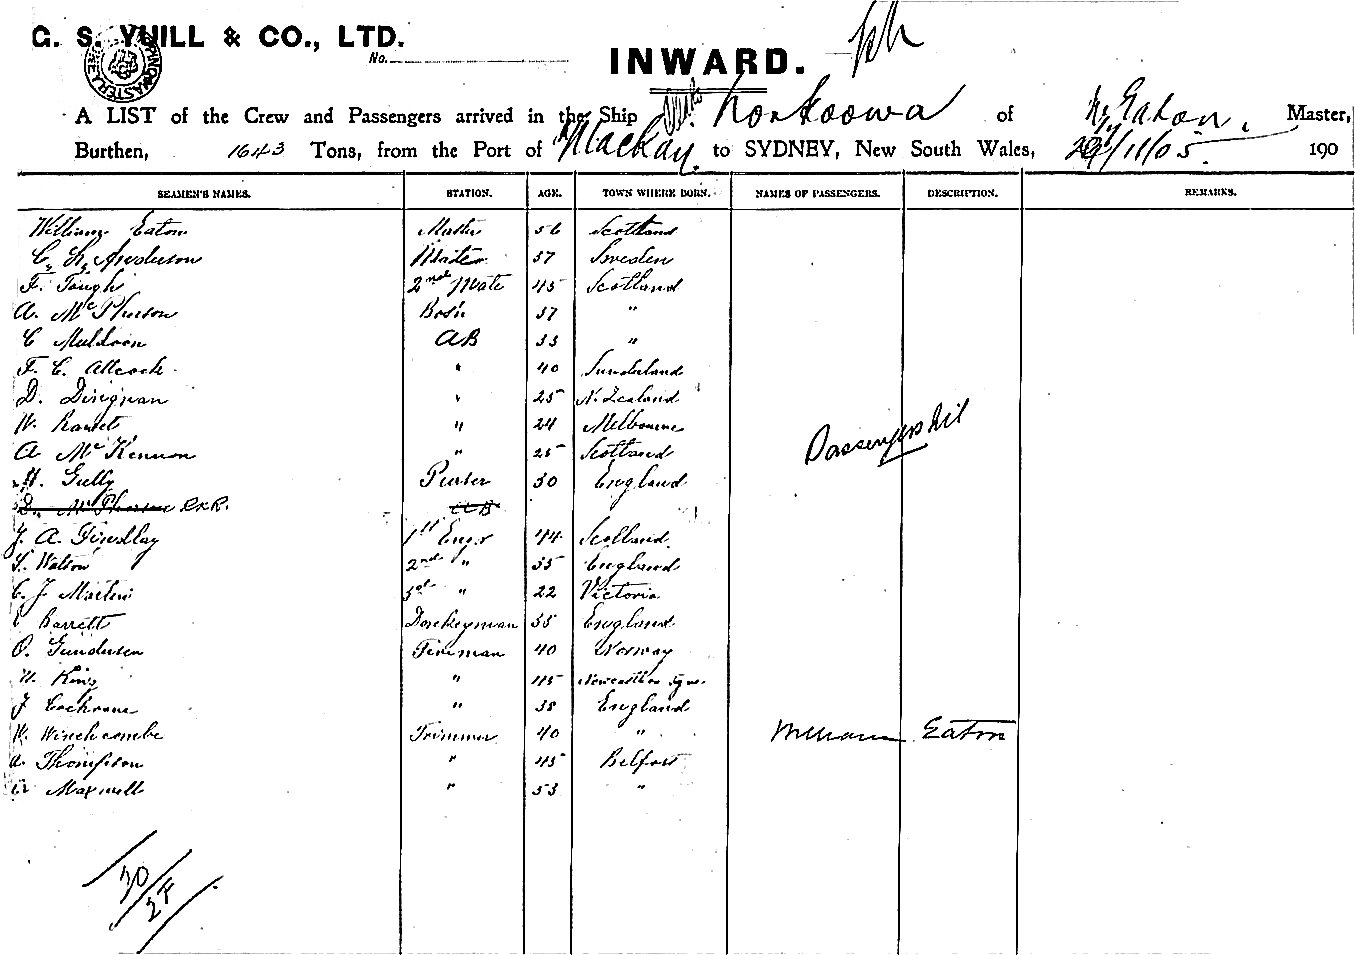 G. S. YUILL & CO., LTD.
No.
INWARD.
A LIST of the Crew and Passengers arrived in the Ship of W. Eaton, Master,
Burthen, 1643 Tons, from the Port of Mackay. to SYDNEY, New South Wales, 29/11/05. 190
SEAMEN'S NAMES. STATION. AGE. TOWN WHERE BORN. NAMES OF PASSENGERS. DESCRIPTION. REMARKS.
William Eaton Master 56 Scotland
Anderson Mate 37 Sweden
F. Tough 2nd Mate 45 Scotland
A. McPherson Bosn 37 "
C Muldoon AB 33 "
F. C. Allcock " 40 Sunderland
D. Dingnan " 25 N. Zealand
W. " 24 Melbourne
A. McKennon " 25 Scotland
H. Gully 30 England
D. McPherson AB
J. A. Findlay 1st Engr 44 Scotland
Watson 2nd " 35 England
C. J. Martin 3rd " 22 Victoria
Barrett Donkeyman 35 England
O. Gundersen Fireman 40 Norway
King " 45 Newcastle
J Cochrane " 38 England
W. Winchcombe Trimmer 40 "
A. Thompson " 45 Belfast
Maxwell " 53 "
Passengers Nil
William Eaton
20/24